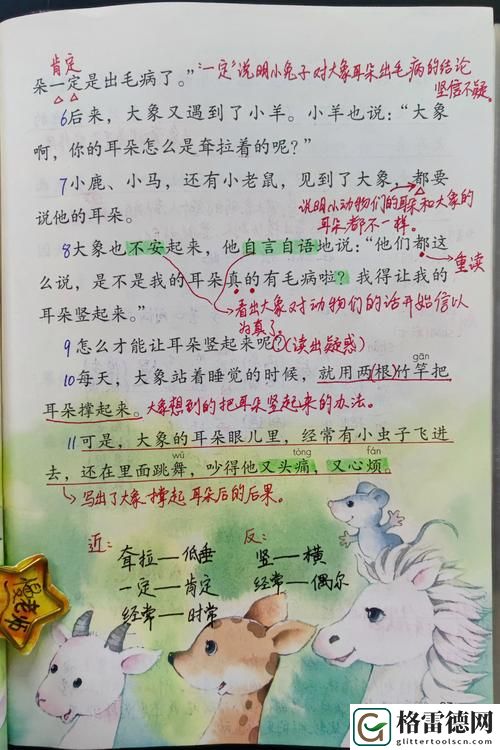 肯定
朵一定是出毛病了。”
“一定”说明小兔子对大象耳朵出毛病的结论
坚信不疑。
6后来，大象又遇到了小羊。小羊也说：“大象
啊，你的耳朵怎么是耷拉着的呢？”
7小鹿、小马，还有小老鼠，见到了大象，都要
说他的耳朵。
说明小动物们的耳朵和大象的
耳朵都不一样。
8大象也不安起来，他自言自语地说：“他们都这
么说，是不是我的耳朵真的有毛病啦？我得让我的
重读
耳朵竖起来。”
看出大象对动物们的话开始信以
为真了。
9怎么才能让耳朵竖起来呢？(读出疑惑)
gān
10每天，大象站着睡觉的时候，就用两(根)竹竿把
耳朵撑起来。大象想到的把耳朵竖起来的办法。
11可是，大象的耳朵眼儿里，经常有小虫子飞进
wǔ tóng fán
去，还在里面跳舞，吵得他又头痛，又心烦。
写出了大象撑起耳朵后的后果。
近： 反：
耷拉—低垂 竖—横
一定—肯定 经常—偶尔
经常—时常
慢老师
格雷德网
glittertoolscn.com